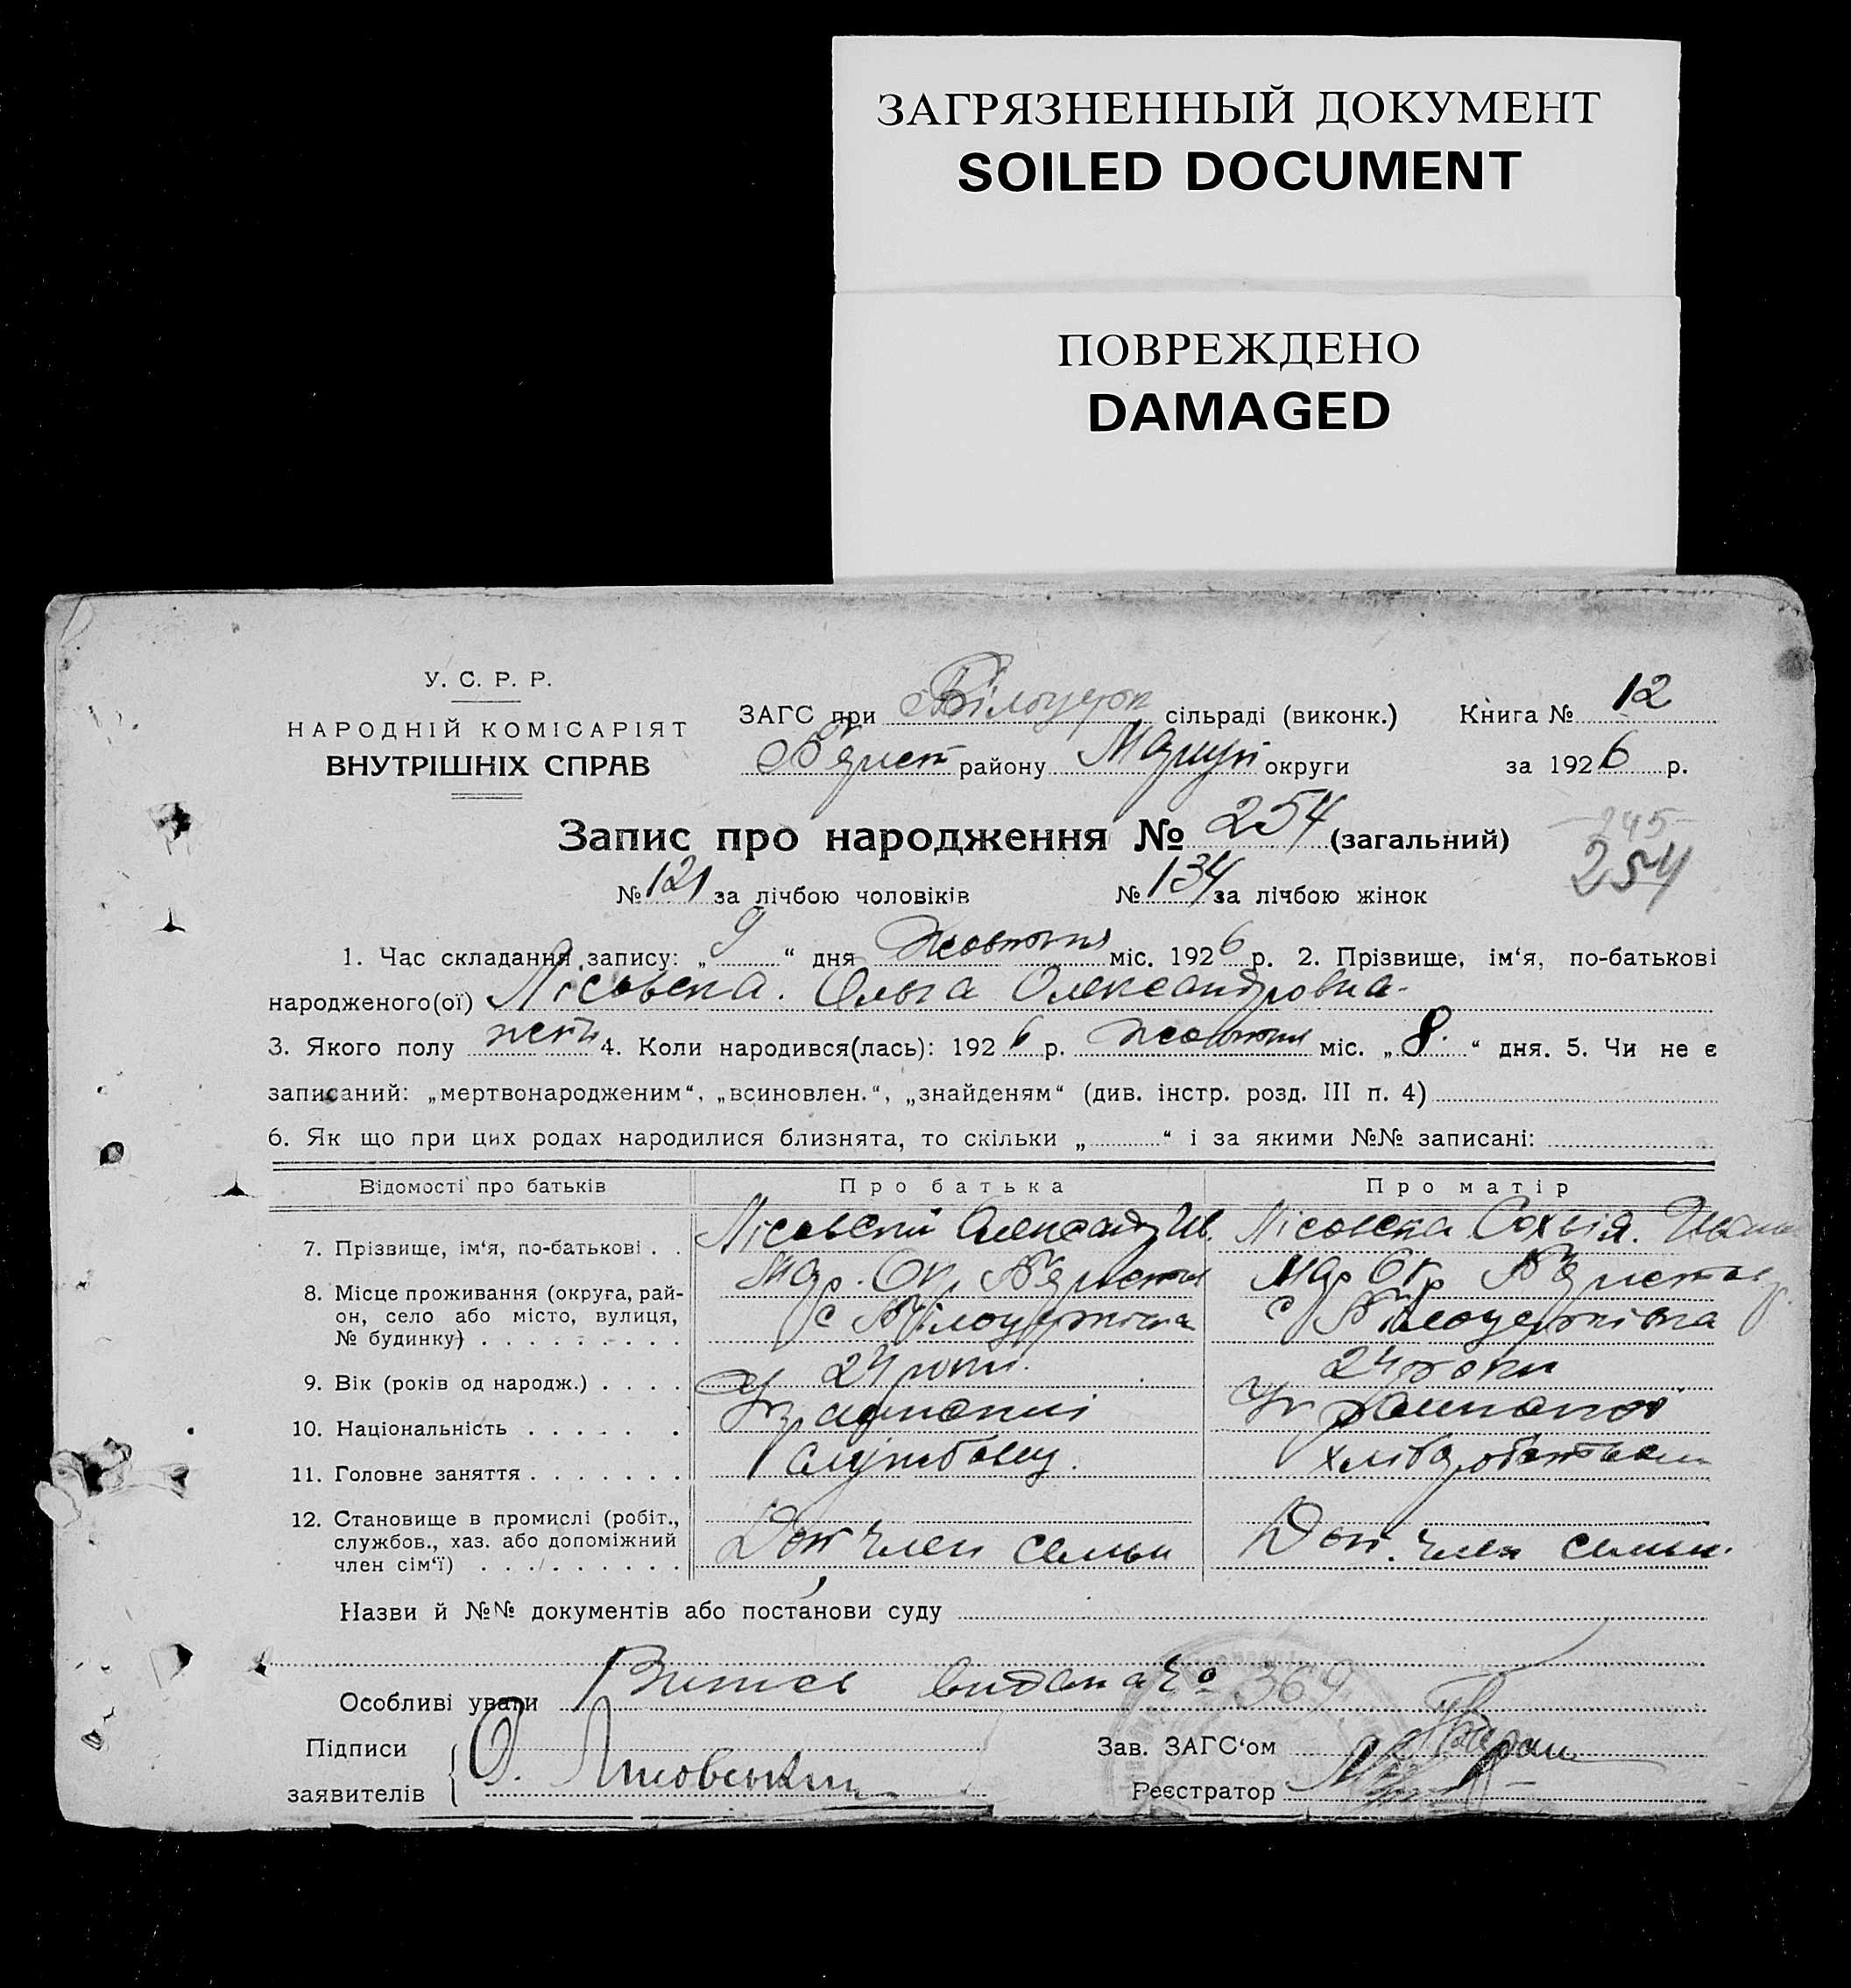 ЗАГРЯЗНЕННЫЙ ДОКУМЕНТ
SOILED DOCUMENT
ПОВРЕЖДЕНО
DAMAGED
У. С. Р. Р.
НАРОДНІЙ КОМІСАРІЯТ
ВНУТРІШНІХ СПРАВ
ЗАГС при Білоцерк сільраді (виконк.) Книга № 12
району Маріуп округи за 1926 р.
Запис про народження № 254 (загальний)
245
254
№ 121 за лічбою чоловіків № 134 за лічбою жінок
1. Час складання запису: „9“ дня жовтня міс. 1926 р. 2. Прізвище, ім‘я, по-батькові
народженого(ої) Лісовска. Ольга Олександровна
3. Якого полу жен 4. Коли народився(лась): 1926 р. жовтня міс. „8.“ дня. 5. Чи не є
записаний: „мертвонародженим“, „всиновлен.“, „знайденям“ (див. інстр. розд. III п. 4)
6. Як що при цих родах народилися близнята, то скільки „ “ і за якими №№ записані:
Відомості про батьків Про батька Про матір
7. Прізвище, ім‘я, по-батькові . . Лісовский Александ Ив. Лісовска Софія. Иван
8. Місце проживання (округа, рай-
он, село або місто, вулиця, с Білоцерківка с Білоцерківка
№ будинку) . . . . . . . . .
9. Вік (років од народж.) . . . . 24 роки. 24 роки
10. Національність . . . . . .
11. Головне заняття . . . . . . . службовец. хліборобством
12. Становище в промислі (робіт.,
службов., хаз. або допоміжний Доп член семьи Доп. член семьи.
член сім‘ї) . . . . . . . . .
Назви й №№ документів або постанови суду
Особливі уваги Витяг видана № 369
Підписи Зав. ЗАГС‘ом
заявителів О. Лисовський Реєстратор